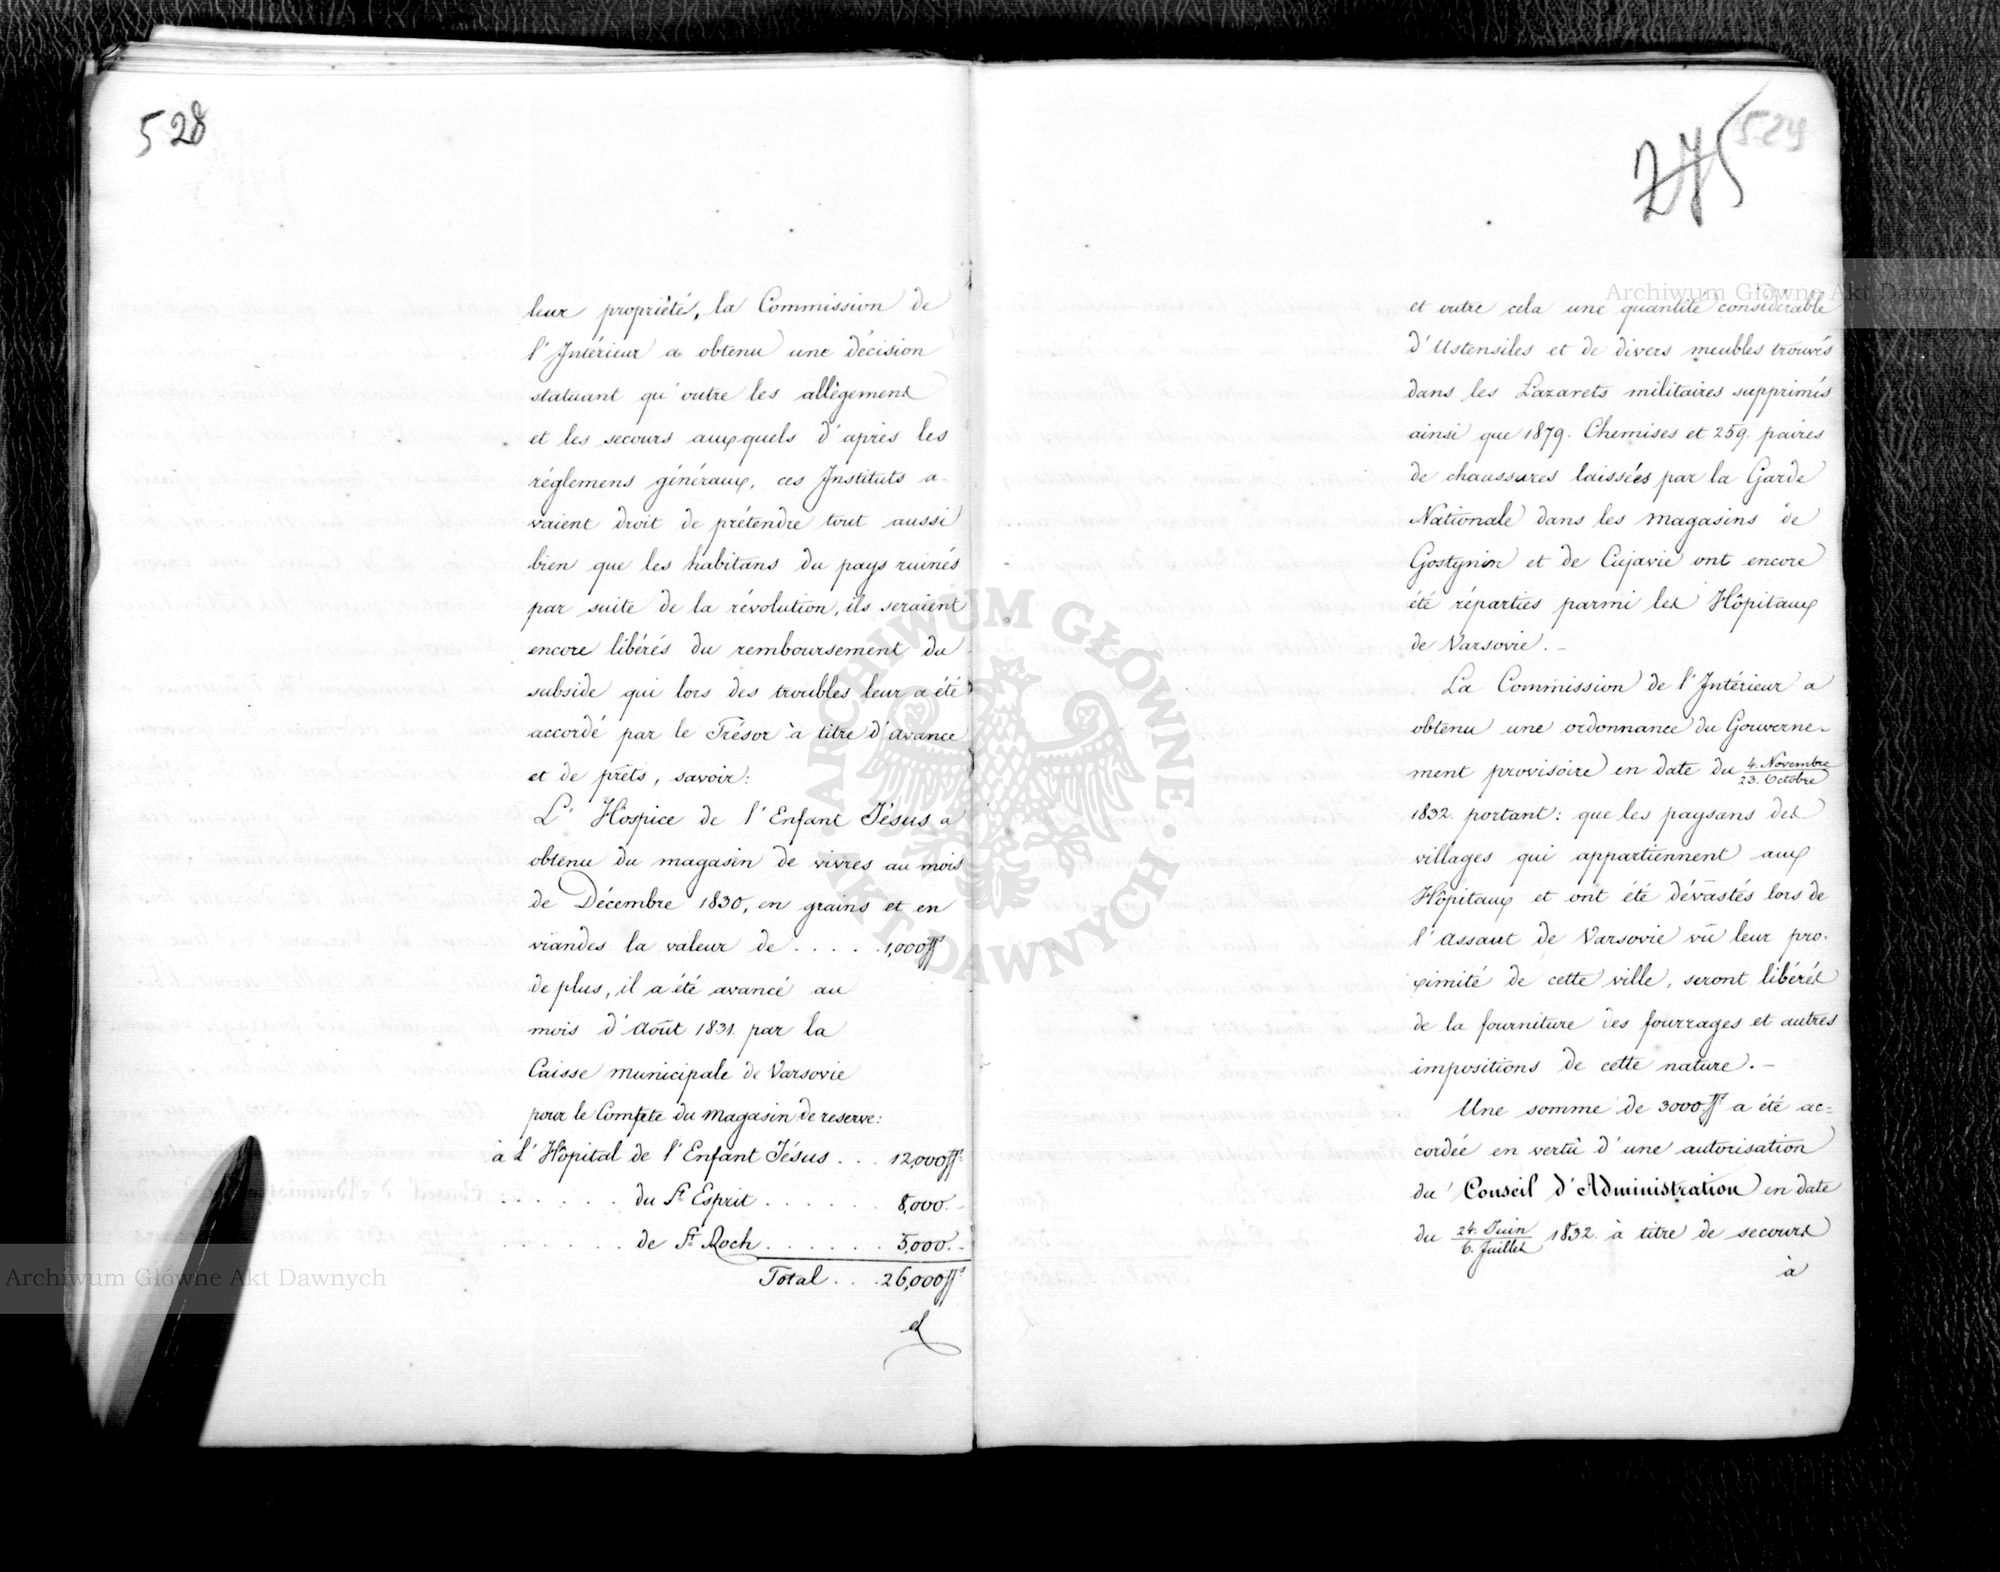 528
leur propriété, la Commission de
l'Intérieur a obtenu une décision
statuant qu'outre les allègemens
et les secours auxquels d'après les
réglemens généraux, ces Instituts a-
vaient droit de prétendre tout aussi
bien que les habitans du pays ruinés
par suite de la révolution, ils seraient
encore libérés du remboursement du
subside qui lors des troubles leur a été
accordé par le Trésor à titre d'avance
et de prêts, savoir:
L'Hospice de l'Enfant Jésus a
obtenu du magasin de vivres au mois
de Décembre 1830, en grains et en
viandes la valeur de . . . . . 1,000 ffs
de plus, il a été avancé au
mois d'Août 1831. par la
Caisse municipale de Varsovie
pour le Compte du magasin de reserve:
à l'Hôpital de l'Enfant Jésus . . . 12,000 ffs
. . . . . . du St Esprit . . . . . . 8,000. -
. . . . . . de St Roch . . . . . . 5,000. -
Total . . . 26,000 ffs
et
529
275
et outre cela une quantité considérable
d'Ustensiles et de divers meubles trouvés
dans les Lazarets militaires supprimés
ainsi que 1879. Chemises et 259. paires
de chaussures laissées par la Garde
Nationale dans les magasins de
Gostynin et de Cujavie ont encore
été réparties parmi les Hôpitaux
de Varsovie. -
La Commission de l'Intérieur a
obtenu une ordonnance du Gouverne-
ment provisoire en date du 4. Novembre
23. Octobre
1832. portant: que les paysans des
villages qui appartiennent aux
Hôpitaux et ont été dévastés lors de
l'assaut de Varsovie vû leur pro-
ximité de cette ville, seront libérés
de la fourniture des fourrages et autres
impositions de cette nature. -
Une somme de 3000 ffs a été ac=
cordée en vertû d'une autorisation
du Conseil d'Administration en date
du 24. Juin
6. Juillet 1832. à titre de secours
à
Archiwum Główne Akt Dawnych
ARCHIWUM GŁÓWNE AKT DAWNYCH
Archiwum Główne Akt Dawnych